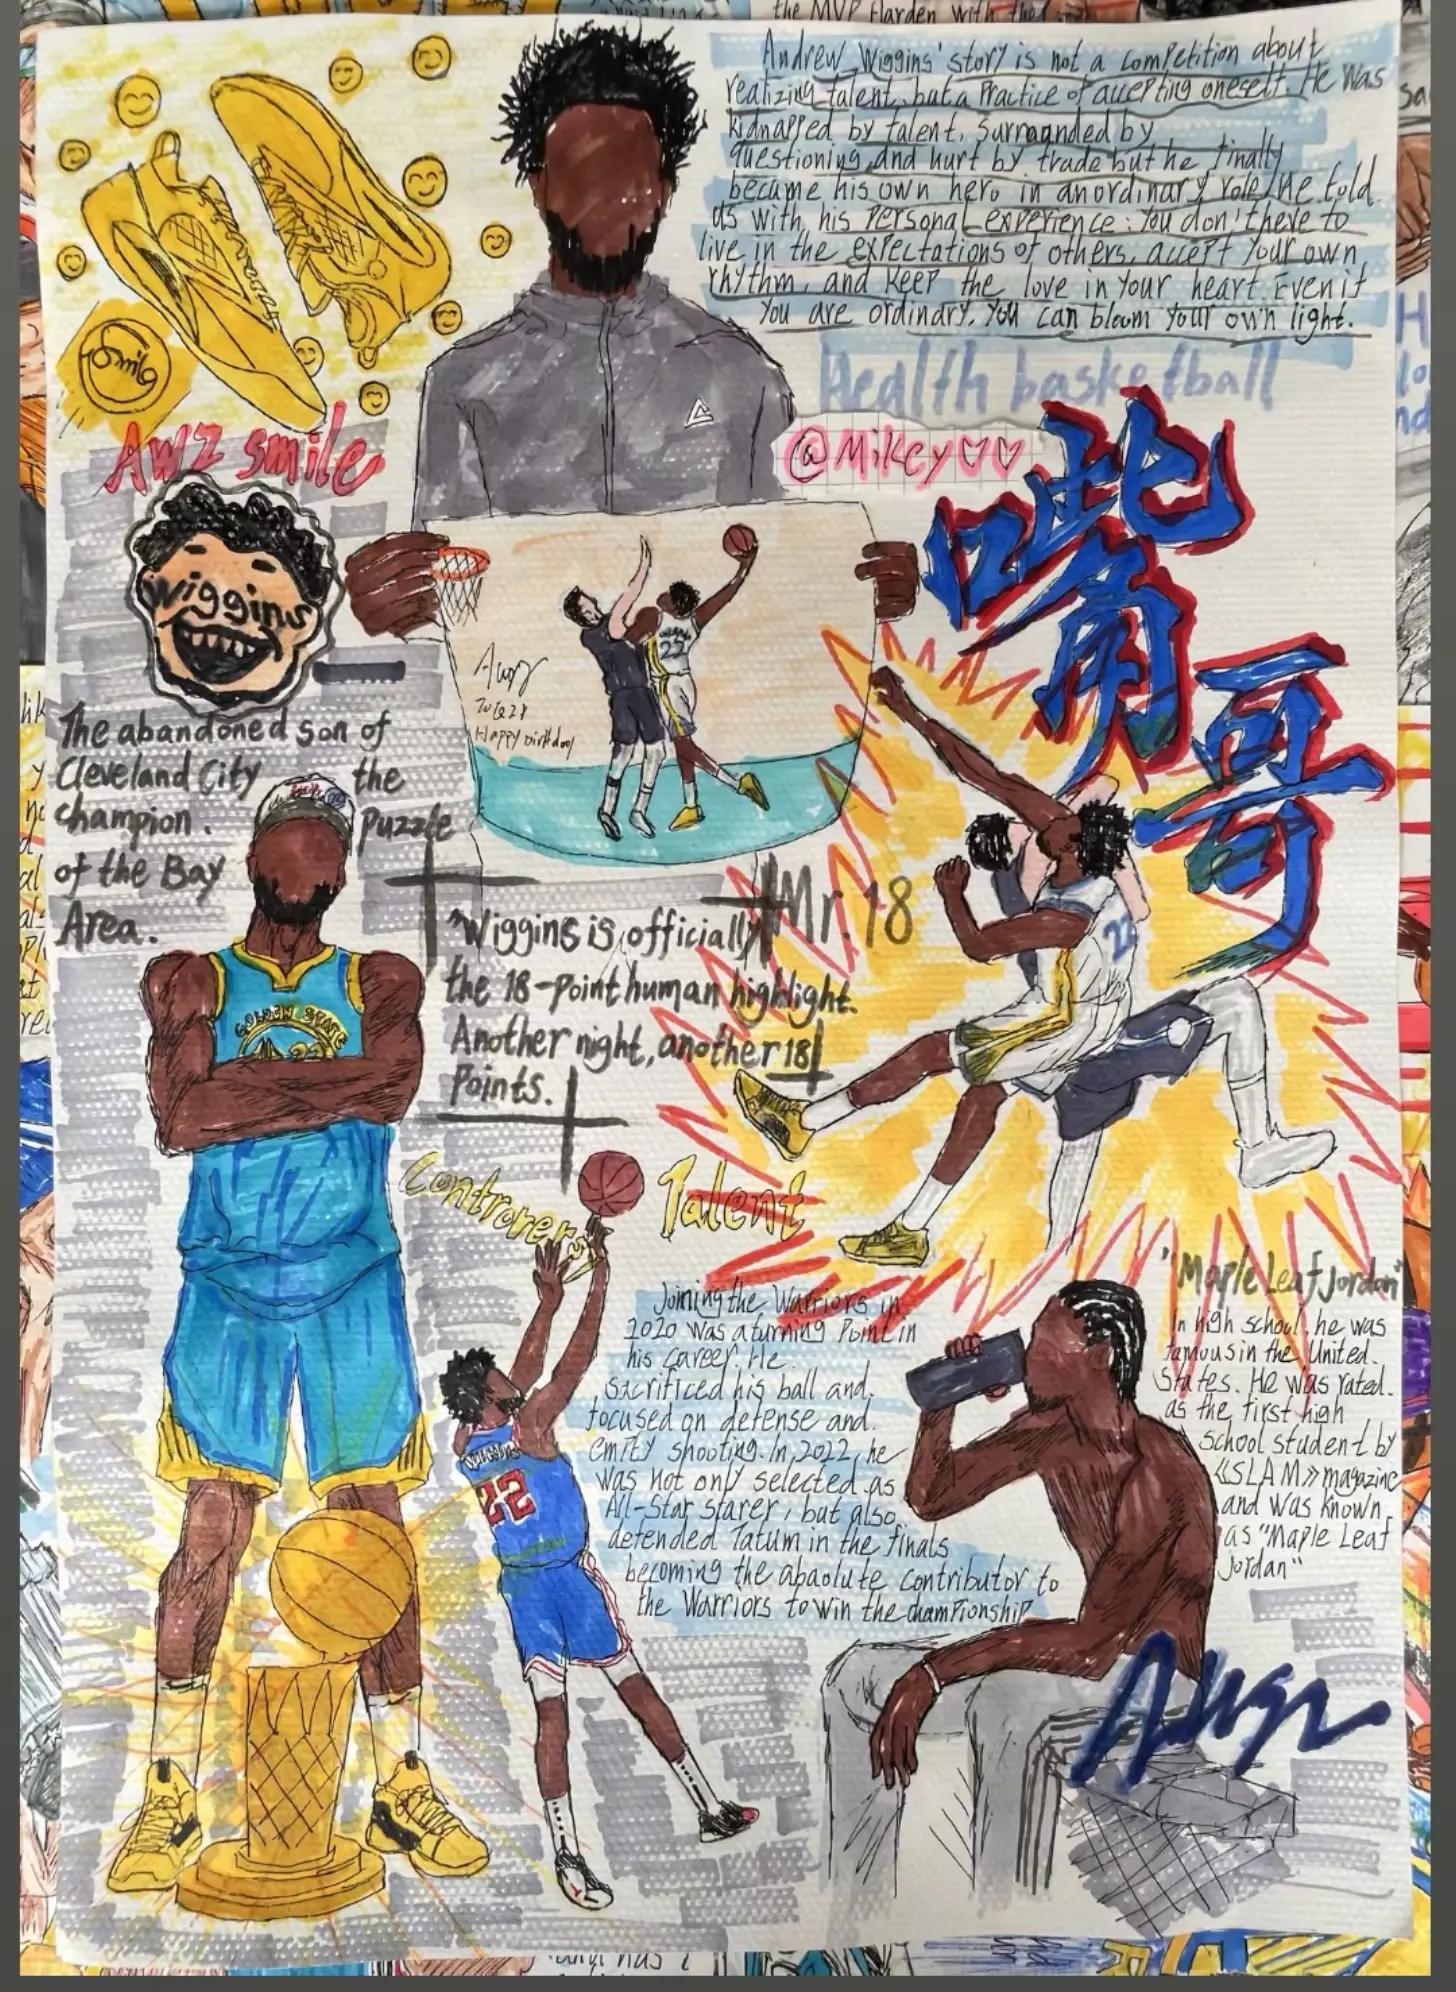 the MVP Harden with the
Andrew Wiggins' story is not a competition about
realizing talent, but a practice of accepting oneself. He was
kidnapped by talent, surrounded by
questioning and hurt by trade but he finally
became his own hero in an ordinary role. He told
us with his personal experience: you don't have to
live in the expectations of others, accept your own
rhythm, and keep the love in your heart. Even if
you are ordinary, you can bloom your own light.
Health basketball
@Mikey♡♡
嘴
哥
Smile
AW2 smile
Wiggins
22
Happy birthday
The abandoned son of
Cleveland City the
champion. puzzle
of the Bay
Area.
Mr. 18
"Wiggins is officially
the 18-point human highlight.
Another night, another 18
Points.
22
GOLDEN STATE
22
Controvers
Talent
Joining the Warriors in
2020 was a turning point in
his career. He
sacrificed his ball and
focused on defense and
empty shooting. In 2022, he
was not only selected as
All-Star starer, but also
defended Tatum in the finals
becoming the abaolute contributor to
the Warriors to win the championship
WIGGINS
22
"Maple Leaf Jordan"
In high school, he was
famous in the United
States. He was rated
as the first high
school student by
《SLAM》magazine
and was known
as "Maple Leaf
Jordan"